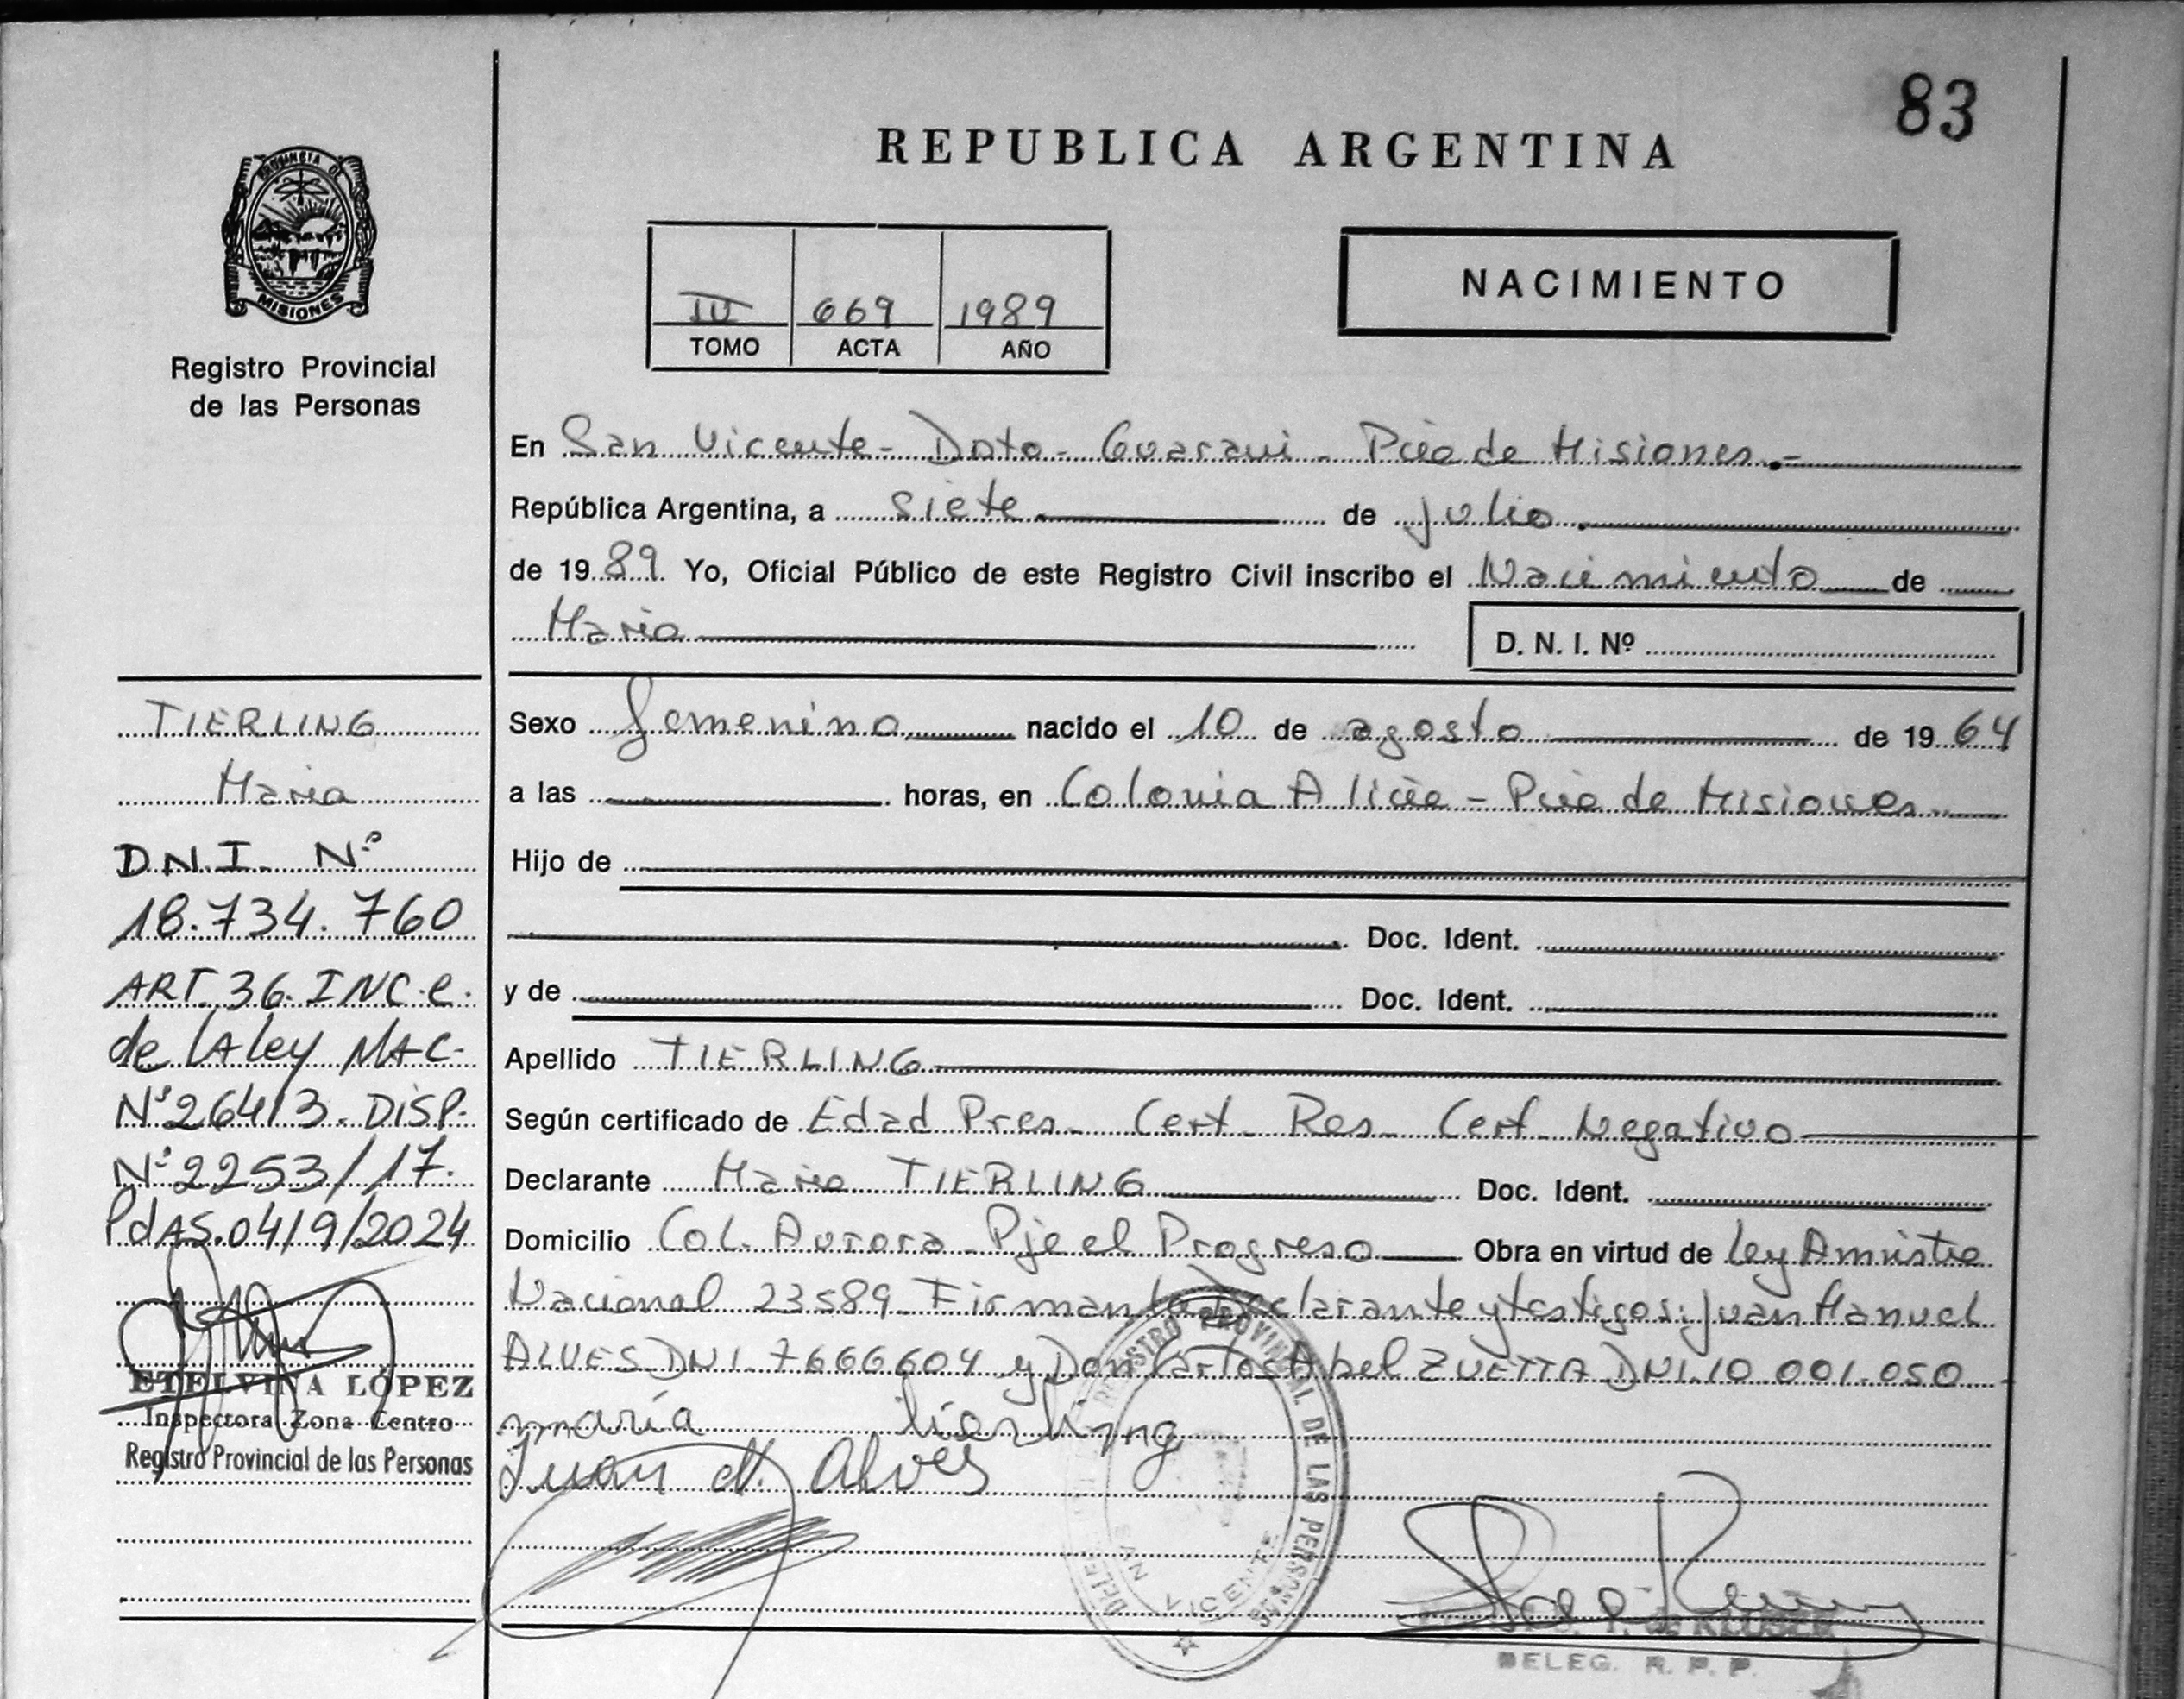 83
REPUBLICA ARGENTINA
PROVINCIA DE
MISIONES
Registro Provincial
de las Personas
NACIMIENTO
669 1989
TOMO ACTA AÑO
En San Vicente - Dpto - Guarani - Pcia de Misiones.-
República Argentina, a siete de julio
de 1989. Yo, Oficial Público de este Registro Civil inscribo el Nacimiento de
Maria D. N. I. Nº
TIERLING
Maria
D.N.I. Nº
18.734.760
ART. 36. INC. e.
de LA ley NAC.
Nº 26413. DISP.
Nº 2253/17.
PdAS. 0419/2024
ETELVINA LÓPEZ
Inspectora Zona Centro
Registro Provincial de las Personas
Sexo femenino nacido el 10 de agosto de 1964
a las horas, en Colonia Alicia - Pcia de Misiones
Hijo de
Doc. Ident.
y de Doc. Ident.
Apellido TIERLING
Según certificado de Edad Pres. Cert. Res. Cert. Negativo
Declarante Maria TIERLING Doc. Ident.
Domicilio Col. Aurora - Pje el Progreso Obra en virtud de Ley Amnistia
Nacional 23589. Firman la declarante y testigos: Juan Manuel
ALVES DNI. 7666604 y Don Carlos Abel ZUETTA DNI. 10 001.050
maría tierling
Juan M. Alves
REGISTRO PROVINCIAL DE LAS PERSONAS
SAN VICENTE
DELEG. R. P. P.